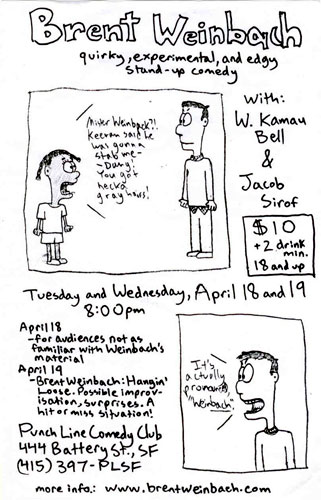 Brent Weinbach
quirky, experimental, and edgy
stand-up comedy
With:
W. Kamau
Bell
&
Jacob
Sirof
Mister Weinback?!
Keevan said he
was gonna
stab me-
-Dang!
You got
hecka
gray hairs!
$10
+2 drink
min.
18 and up
Tuesday and Wednesday, April 18 and 19
8:00pm
April 18
-for audiences not as
familiar with Weinbach's
material
April 19
-Brent Weinbach: Hangin'
Loose. Possible improv-
isation, surprises. A
hit or miss situation!
It's
actually
pronounced,
"Weinbach".
Punch Line Comedy Club
444 Battery St., SF
(415) 397-PLSF
more info.: www.brentweinbach.com